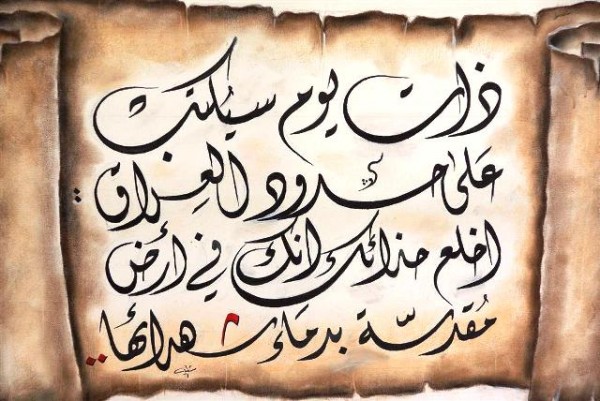 ذات يوم سيُكتب
عَلى حدود العِراق :
اخلع حذائك انك في أرض
مُقدسّة بدمَاء شهدائها ..